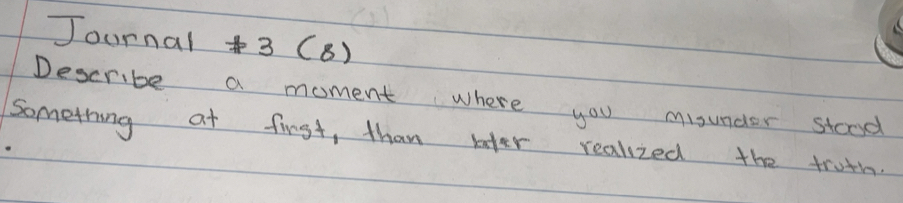 Journal #3 (8)
Describe a moment where you misunder stood
Something at first, than later realized the truth.